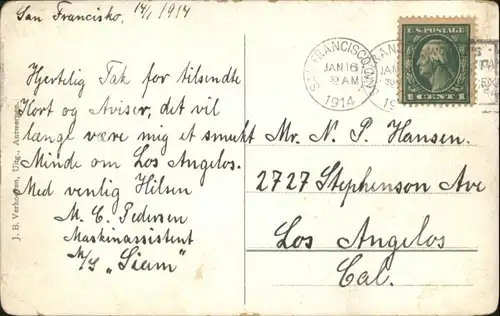 San Francisko, 14/1 1914
Hjertelig Tak for tilsendte
Kort og Aviser, det vil
længe være mig et smukt
Minde om Los Angelos.
Med venlig Hilsen
M. C. Pedersen
Maskinassistent
M/S „Siam”
Mr. N. P. Hansen.
2727 Stephenson Ave
Los Angelos
Cal.
J. B. Verhoeven, Uitg., Antwerpen.
SAN FRANCISCO, CAL.
JAN 16
AM
1914
U.S. POSTAGE
1 CENT 1